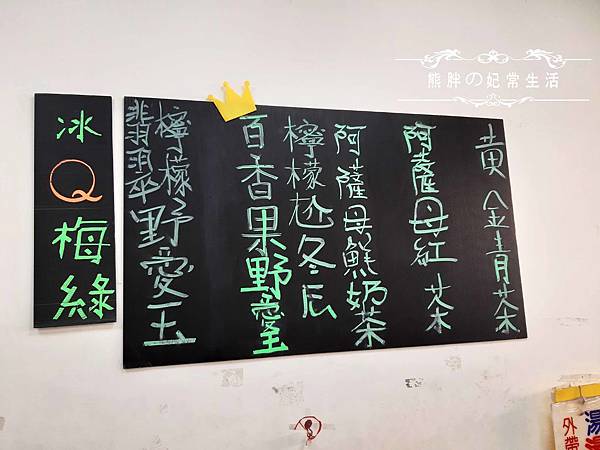 熊胖の妃常生活
黄金青茶
阿薩母紅茶
阿薩母鮮奶茶
檸檬尬冬瓜
百香果野愛玉
檸檬野愛玉
翡翠
冰Q梅綠
外帶